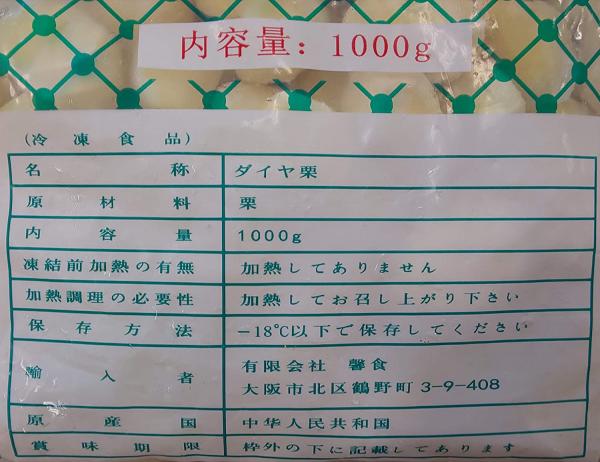 内容量：1000g
(冷凍食品)
名称 ダイヤ栗
原材料 栗
内容量 1000g
凍結前加熱の有無 加熱してありません
加熱調理の必要性 加熱してお召し上がり下さい
保存方法 −18℃以下で保存してください
輸入者 有限会社 馨食
大阪市北区鶴野町 3-9-408
原産国 中华人民共和国
賞味期限 枠外の下に記載してあります